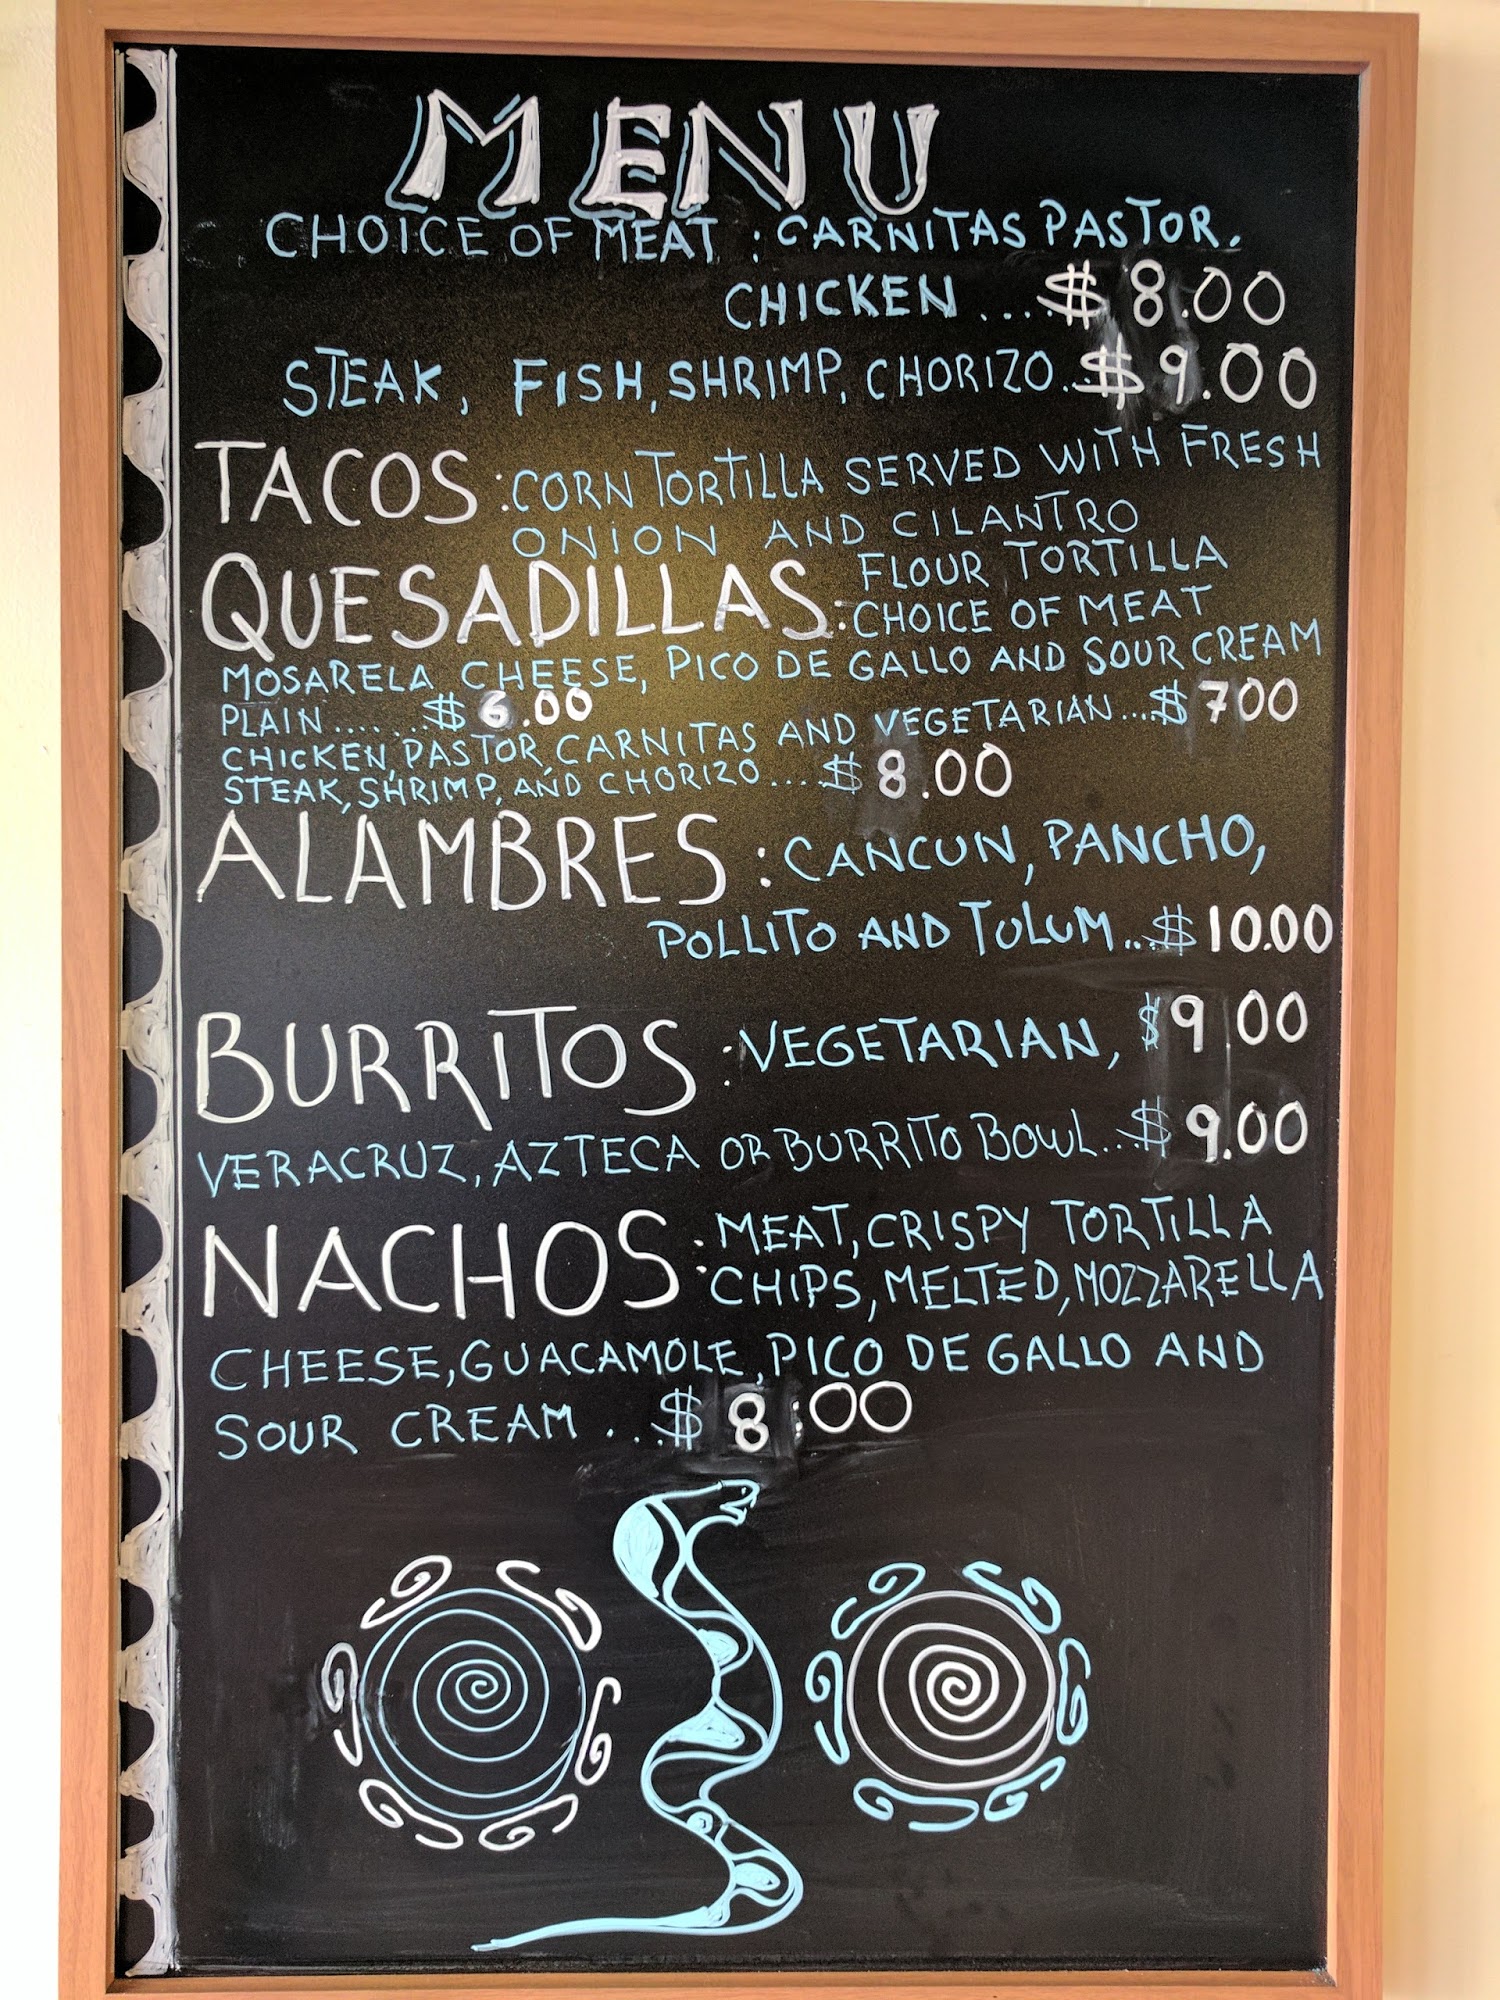 MENU
CHOICE OF MEAT : CARNITAS PASTOR.
CHICKEN .... $ 8.00
STEAK, FISH, SHRIMP, CHORIZO... $ 9.00
TACOS : CORN TORTILLA SERVED WITH FRESH
ONION AND CILANTRO
QUESADILLAS : FLOUR TORTILLA
CHOICE OF MEAT
MOSARELA CHEESE, PICO DE GALLO AND SOUR CREAM
PLAIN ....... $ 6.00
CHICKEN, PASTOR, CARNITAS AND VEGETARIAN .... $ 700
STEAK, SHRIMP, AND CHORIZO .... $ 8.00
ALAMBRES : CANCUN, PANCHO,
POLLITO AND TULUM ... $ 10.00
BURRITOS : VEGETARIAN, $ 9 00
VERACRUZ, AZTECA OR BURRITO BOWL ... $ 9.00
NACHOS : MEAT, CRISPY TORTILLA
CHIPS, MELTED, MOZZARELLA
CHEESE, GUACAMOLE, PICO DE GALLO AND
SOUR CREAM ... $ 8:00